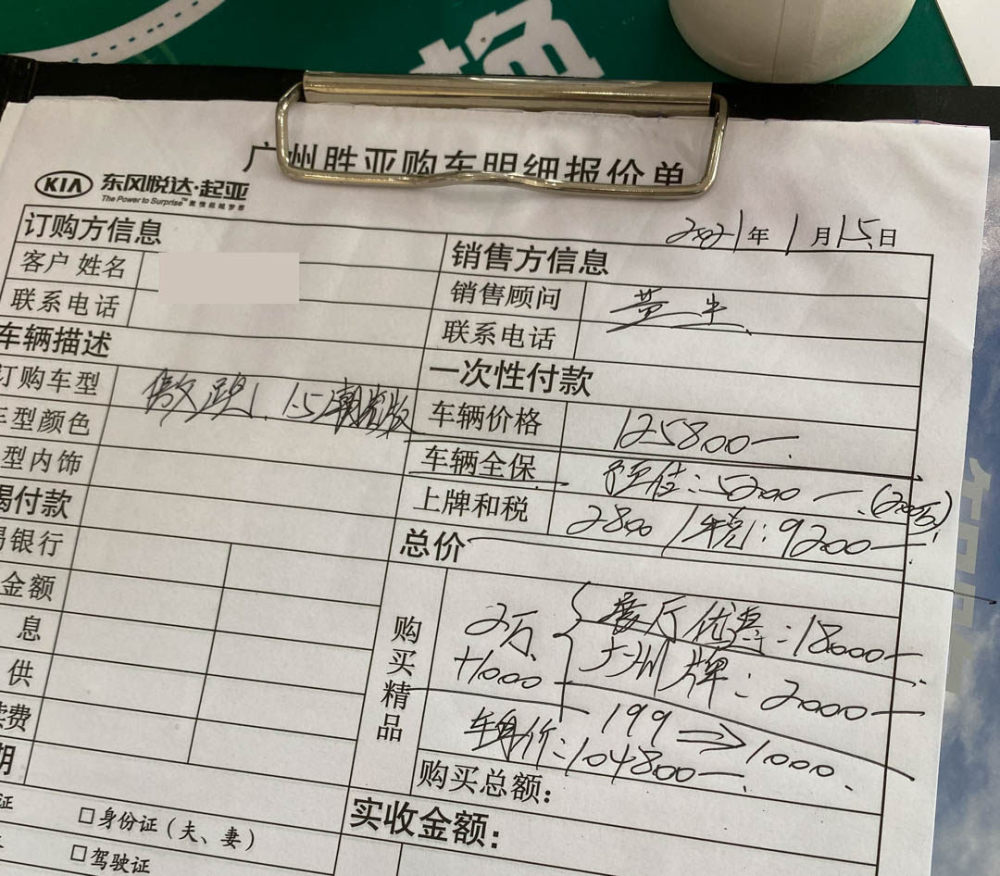 广州胜亚购车明细报价单
KIA 东风悦达·起亚
The Power to Surprise™
2021年1月15日
订购方信息
销售方信息
客户 姓名
销售顾问 黄生
联系电话
联系电话
车辆描述
一次性付款
订购车型 傲跑、1.5潮尚版
车辆价格 125800—
车型颜色
车辆全保 预估:5200—(200万)
型内饰
上牌和税 2800/车税:9200—
揭付款
总价
易银行
金额
息
供
续费
期
购买精品
2万+1000
展厅优惠:18000—
广州牌:2000—
199⇒1000.
车身价:104800—
购买总额:
实收金额:
证
□身份证(夫、妻)
□驾驶证